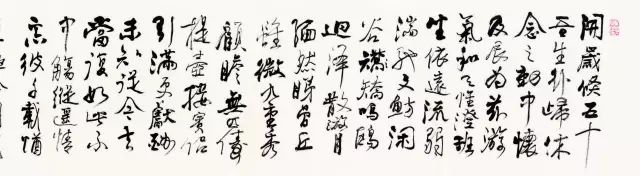 開歲倏五十
吾生行歸休
念之動中懷
及辰為茲游
氣和天惟澄班
坐依遠流弱
湍馳文魴閒
谷矯鳴鷗
迥澤散游目
緬然睇曾丘
雖微九重秀
顧瞻無匹儔
提壺接賓侶
引滿更獻酬
未知從今去
當復如此不
中觴縱遙情
忘彼千載憂